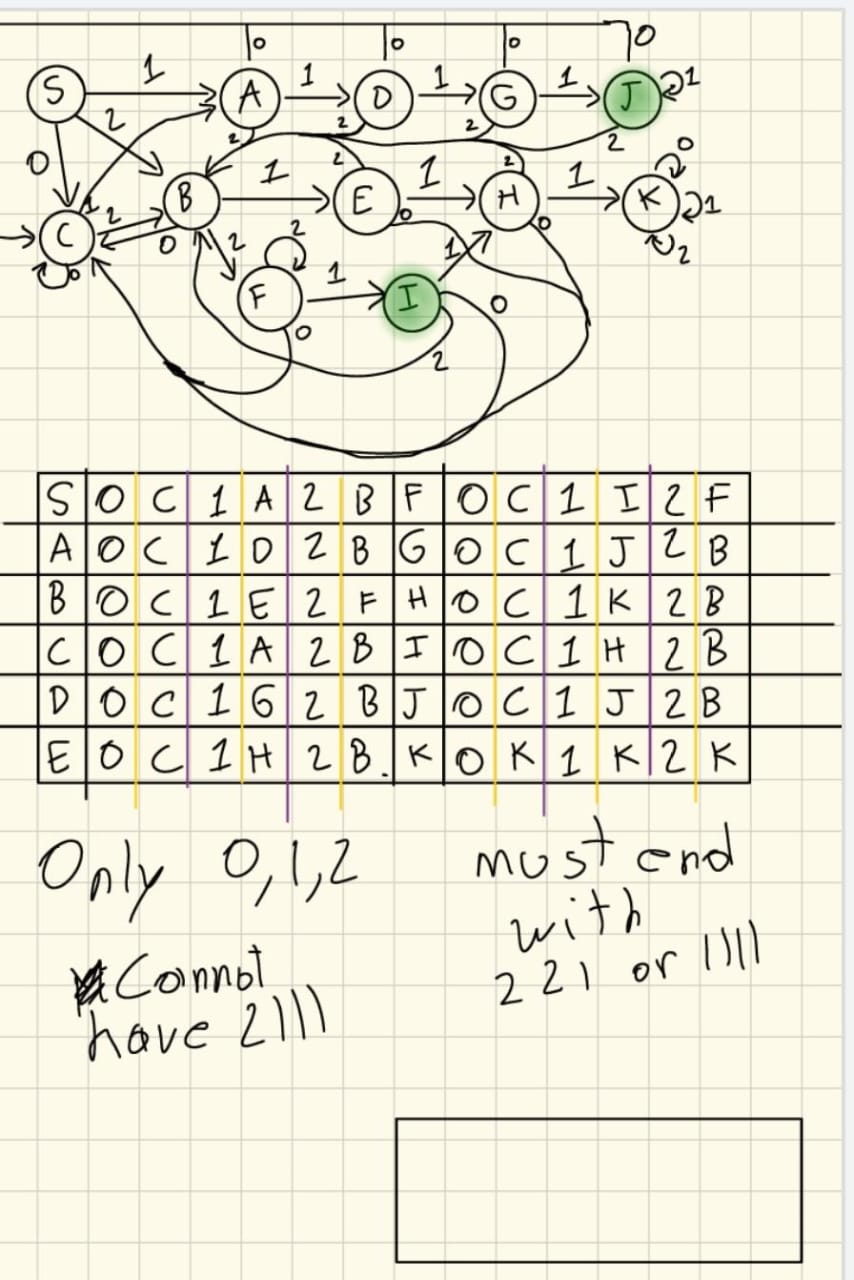 0 0 0 0
S 1 A 1 D 1 G 1 J 1
2 2 2 2 2
0 2 2
C 1 2 0 B 1 E 1 H 1 K 0 1 2
0 0 0
2 F 2 1 I 1 0
0 2
S 0 C 1 A 2 B F 0 C 1 I 2 F
A 0 C 1 D 2 B G 0 C 1 J 2 B
B 0 C 1 E 2 F H 0 C 1 K 2 B
C 0 C 1 A 2 B I 0 C 1 H 2 B
D 0 C 1 G 2 B J 0 C 1 J 2 B
E 0 C 1 H 2 B. K 0 K 1 K 2 K
Only 0,1,2
Cannot
have 2111
must end
with
221 or 1111